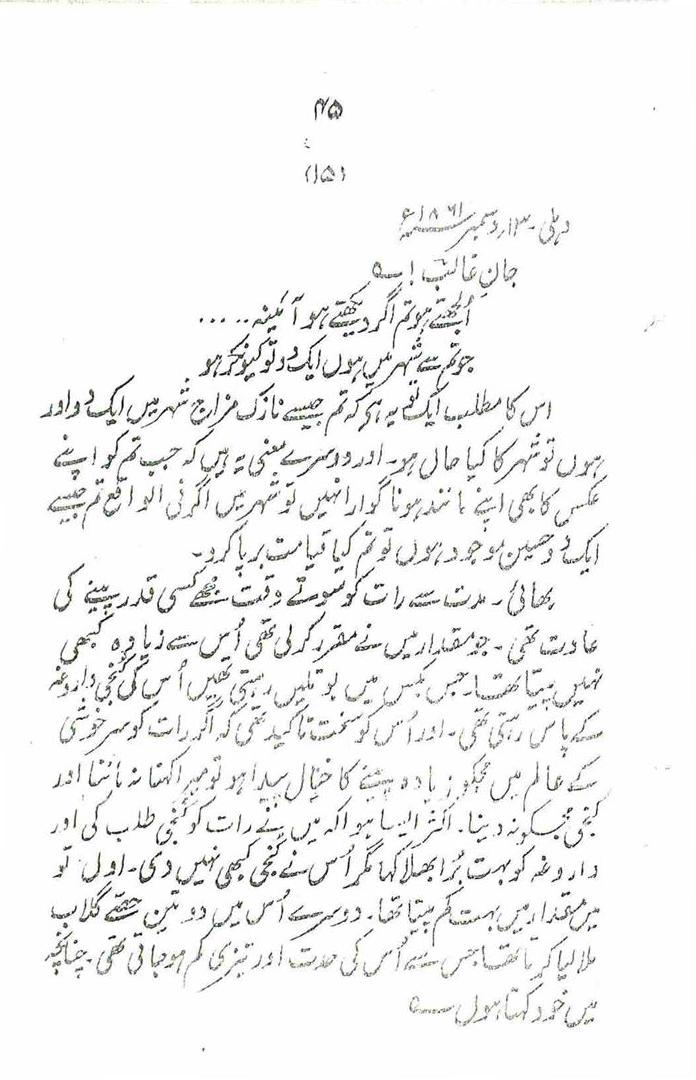 ۴۵
(۱۵)
دہلی ۔ ۱۳ر دسمبر ۱۸۶۱ء
جانِ غالب! ؎
اُلجھتے ہو تم اگر دیکھتے ہو آئینہ.....
جو تم سے شہر میں ہوں ایک دو تو کیونکر ہو
اس کا مطلب ایک تو یہ ہے کہ تم جیسے نازک مزاج شہر میں ایک دو اور
ہوں تو شہر کا کیا حال ہو۔ اور دوسرے معنی یہ ہیں کہ جب تم کو اپنے
عکس کا بھی اپنے مانند ہونا گوارا نہیں تو شہر میں اگر فی الواقع تم جیسے
ایک دو حسین موجود ہوں تو تم کیا قیامت برپا کرو۔
بھائی ۔ مدت سے رات کو سوتے وقت مجھے کسی قدر پینے کی
عادت تھی ۔ جو مقدار میں نے مقرر کر لی تھی اُس سے زیادہ کبھی
نہیں پیتا تھا۔ جس بکس میں بوتلیں رہتی تھیں اُس کی کنجی داروغہ
کے پاس رہتی تھی۔ اور اُس کو سخت تاکید تھی کہ اگر رات کو سرخوشی
کے عالم میں مجھکو زیادہ پینے کا خیال پیدا ہو تو میرا کہنا نہ ماننا اور
کنجی مجھکو نہ دینا۔ اکثر ایسا ہوا کہ میں نے رات کو کنجی طلب کی اور
داروغہ کو بہت بُرا بھلا کہا مگر اُس نے کنجی کبھی نہیں دی۔ اول تو
میں مقدار میں بہت کم پیتا تھا۔ دوسرے اُس میں دو تین حصّے گلاب
ملا لیا کرتا تھا جس سے اُس کی حدت اور تیزی کم ہو جاتی تھی۔ چنانچہ
میں خود کہتا ہوں ؎